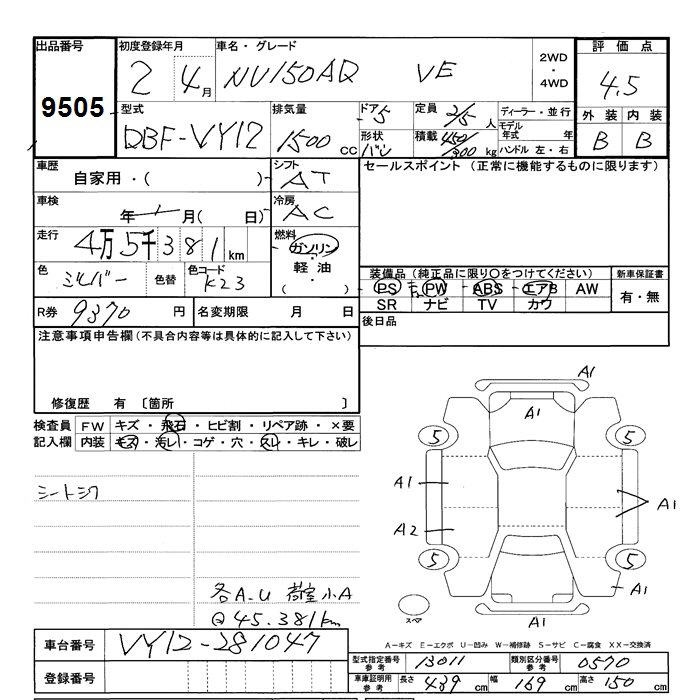 出品番号 初度登録年月 車名・グレード 2WD・4WD 評価点
9505 2 4月 NV150AD VE 4.5
型式 排気量 ドア 5 定員 2/5 人 ディーラー・並行 外装 内装
DBF-VY12 1500 CC 形状 バン 積載 450/300 kg モデル年式 年 B B
ハンドル 左・右
車歴 シフト セールスポイント (正常に機能するものに限ります)
自家用・( ) AT
車検 冷房
年 月( 日) AC
走行 燃料
4万5千381km ガソリン・軽油
色 シルバー 色替 色コード K23
装備品(純正品に限り○をつけてください) 新車保証書
PS PW ABS エアB AW 有・無
SR ナビ TV カワ
R券 9370 円 名変期限 月 日 後日品
注意事項申告欄(不具合内容等は具体的に記入して下さい)
修復歴 有 〔箇所 〕
検査員 FW キズ・飛石・ヒビ割・リペア跡・×要
記入欄 内装 キズ・汚レ・コゲ・穴・スレ・キレ・破レ
シートシワ
各A.U 荷室小A
Q45.381km
A1
A1
5 5
A1 A1
A2
5 5
A1
スペア A1
A-キズ E-エクボ U-凹み W-補修跡 S-サビ C-腐食 XX-交換済
車台番号 VY12-281047
登録番号
型式指定番号 参考 13011 類別区分番号 参考 0570
車庫証明用 参考 長さ 439 cm 幅 169 cm 高さ 150 cm